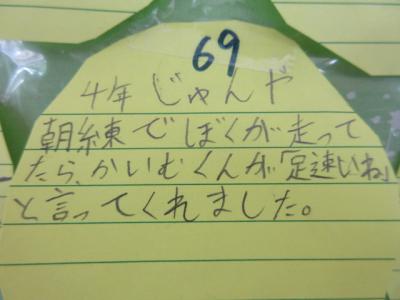 69
4年 じゅんや
朝練でぼくが走って
たら、かいむくんが「足速いね」
と言ってくれました。